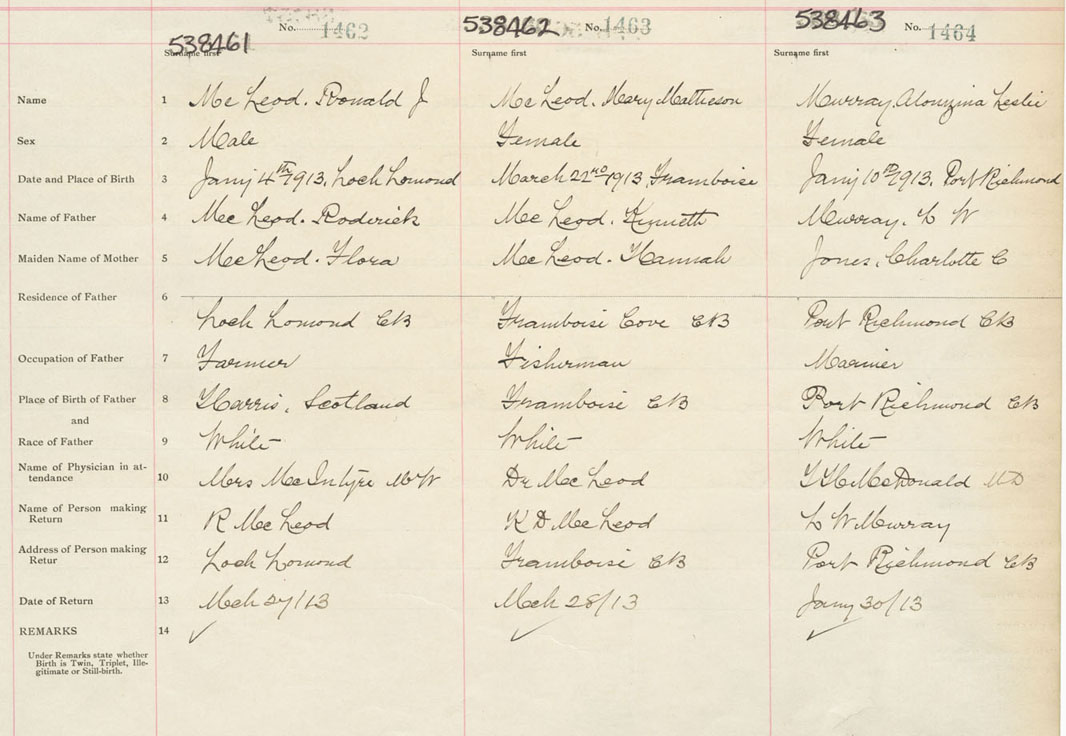 538461 No. 1462 538462 No. 1463 538463 No. 1464
Surname first Surname first Surname first
Name 1 McLeod. Ronald J McLeod. Mary Matheson Murray, Alonzina Leslie
Sex 2 Male Female Female
Date and Place of Birth 3 Jany 4th 1913, Loch Lomond March 22nd 1913, Framboise Jany 10th 1913. Port Richmond
Name of Father 4 McLeod. Roderick McLeod. Kenneth Murray. L W
Maiden Name of Mother 5 McLeod. Flora McLeod. Hannah Jones, Charlotte C
Residence of Father 6
Loch Lomond CB Framboise Cove CB Port Richmond CB
Occupation of Father 7 Farmer Fisherman Marnier
Place of Birth of Father 8 Harris, Scotland Framboise CB Port Richmond CB
and
Race of Father 9 White White White
Name of Physician in at-
tendance 10 Mrs McIntyre MW Dr McLeod McDonald MD
Name of Person making
Return 11 R McLeod K D McLeod L W Murray
Address of Person making
Retur 12 Loch Lomond Framboise CB Port Richmond CB
Date of Return 13 Mch 27/13 Mch 28/13 Jany 30/13
REMARKS 14 ✓ ✓ ✓
Under Remarks state whether
Birth is Twin, Triplet, Ille-
gitimate or Still-birth.